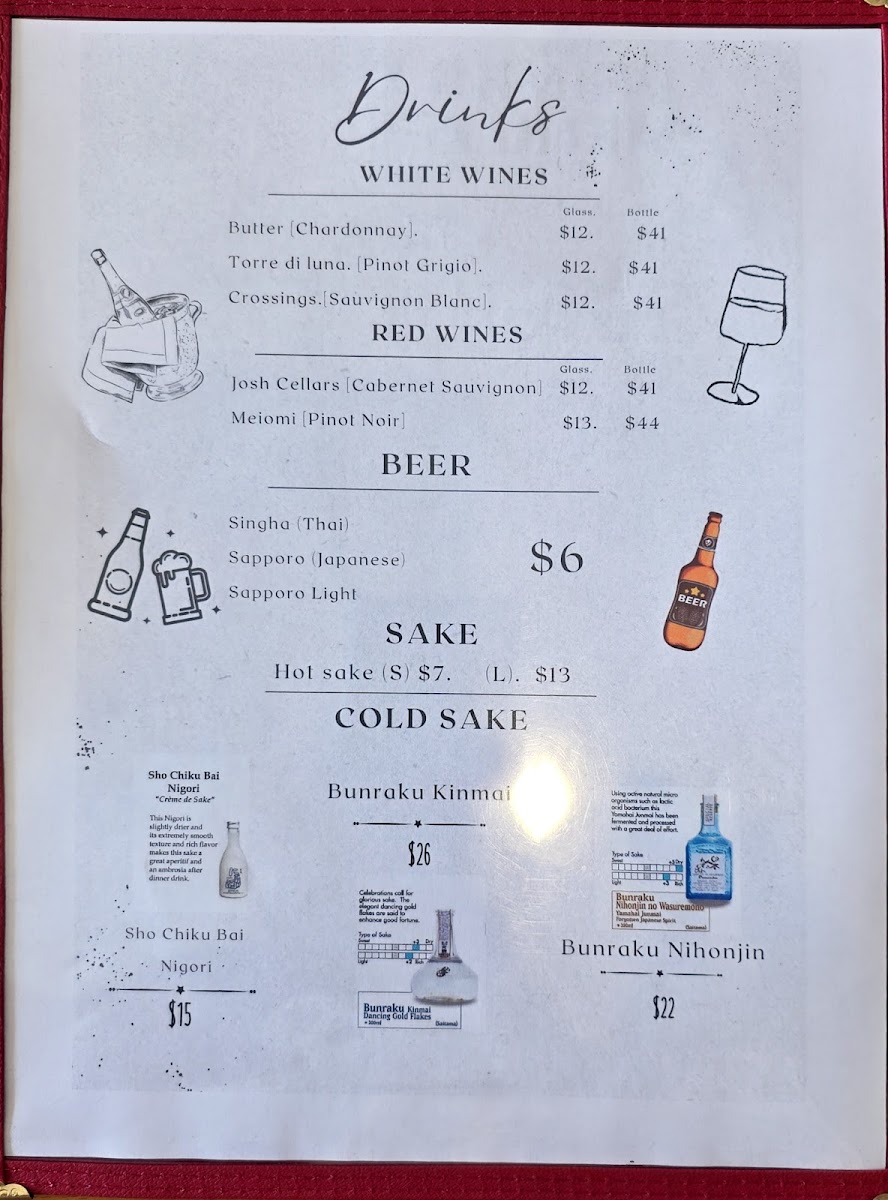 Drinks
WHITE WINES
Glass. Bottle
Butter [Chardonnay]. $12. $41
Torre di luna. [Pinot Grigio]. $12. $41
Crossings.[Sauvignon Blanc]. $12. $41
RED WINES
Glass. Bottle
Josh Cellars [Cabernet Sauvignon] $12. $41
Meiomi [Pinot Noir] $13. $44
BEER
Singha (Thai)
Sapporo (Japanese) $6
Sapporo Light
BEER
SAKE
Hot sake (S) $7. (L). $13
COLD SAKE
Sho Chiku Bai
Nigori
"Crème de Sake"
This Nigori is
slightly drier and
its extremely smooth
texture and rich flavor
makes this sake a
great aperitif and
an ambrosia after
dinner drink.
Sho Chiku Bai
Nigori
$15
Bunraku Kinmai
$26
Celebrations call for
glorious sake. The
elegant dancing gold
flakes are said to
enhance good fortune.
Type of Sake
Sweet +3 Dry
Light +2 Rich
Bunraku Kinmai
Dancing Gold Flakes
• 300ml (Saitama)
Using active natural micro
organisms such as lactic
acid bacterium this
Yamahai Junmai has been
fermented and processed
with a great deal of effort.
Type of Sake
Sweet +3 Dry
Light +3 Rich
Bunraku
Nihonjin no Wasuremono
Yamahai Junmai
Forgotten Japanese Spirit
• 300ml (Saitama)
Bunraku Nihonjin
$22